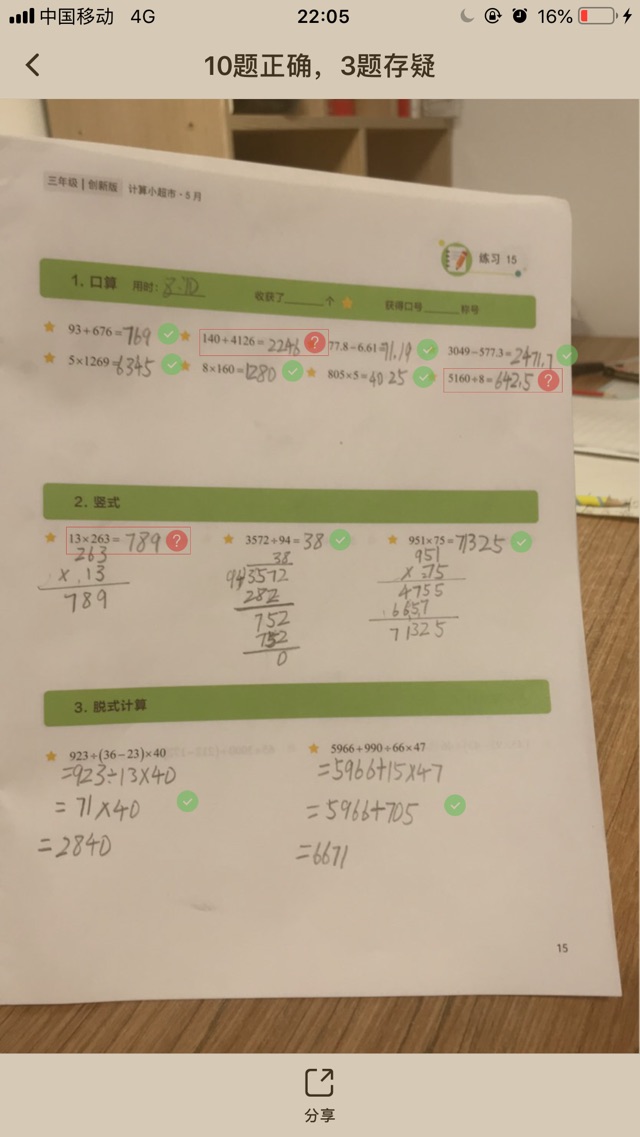 中国移动 4G 22:05 16%
10题正确，3题存疑
三年级 | 创新版 计算小超市·5月
练习 15
1. 口算 用时: 8:10 收获了______个 获得口号______称号
93+676=769 140+4126=2246 77.8-6.61=71.19 3049-577.3=2471.7
5×1269=6345 8×160=1280 805×5=4025 5160÷8=642.5
2. 竖式
13×263=789 3572÷94=38 951×75=71325
263 38 951
×13 94 3572 ×75
789 282 4755
752 6657
752 71325
0
3. 脱式计算
923÷(36-23)×40 5966+990÷66×47
=923÷13×40 =5966+15×47
=71×40 =5966+705
=2840 =6671
15
分享